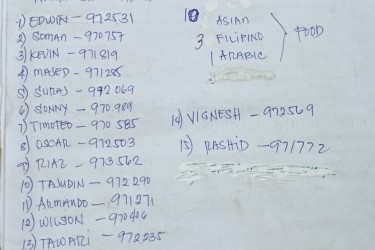 1) EDWIN - 972531
2) SOMAN - 970757
3) KEVIN - 971819
4) MASED - 971285
5) SURAJ - 992069
6) SONNY - 970989
7) TIMOTEO - 970585
8) OSCAR - 972503
9) RIAZ - 973562
10) TAJUDIN - 972290
11) ARMANDO - 971271
12) WILSON - 970426
13) TAWARI - 972235
10 ASIAN
3 FILIPINO
1 ARABIC
FOOD
14) VIGNESH - 972569
15) RASHID - 971772